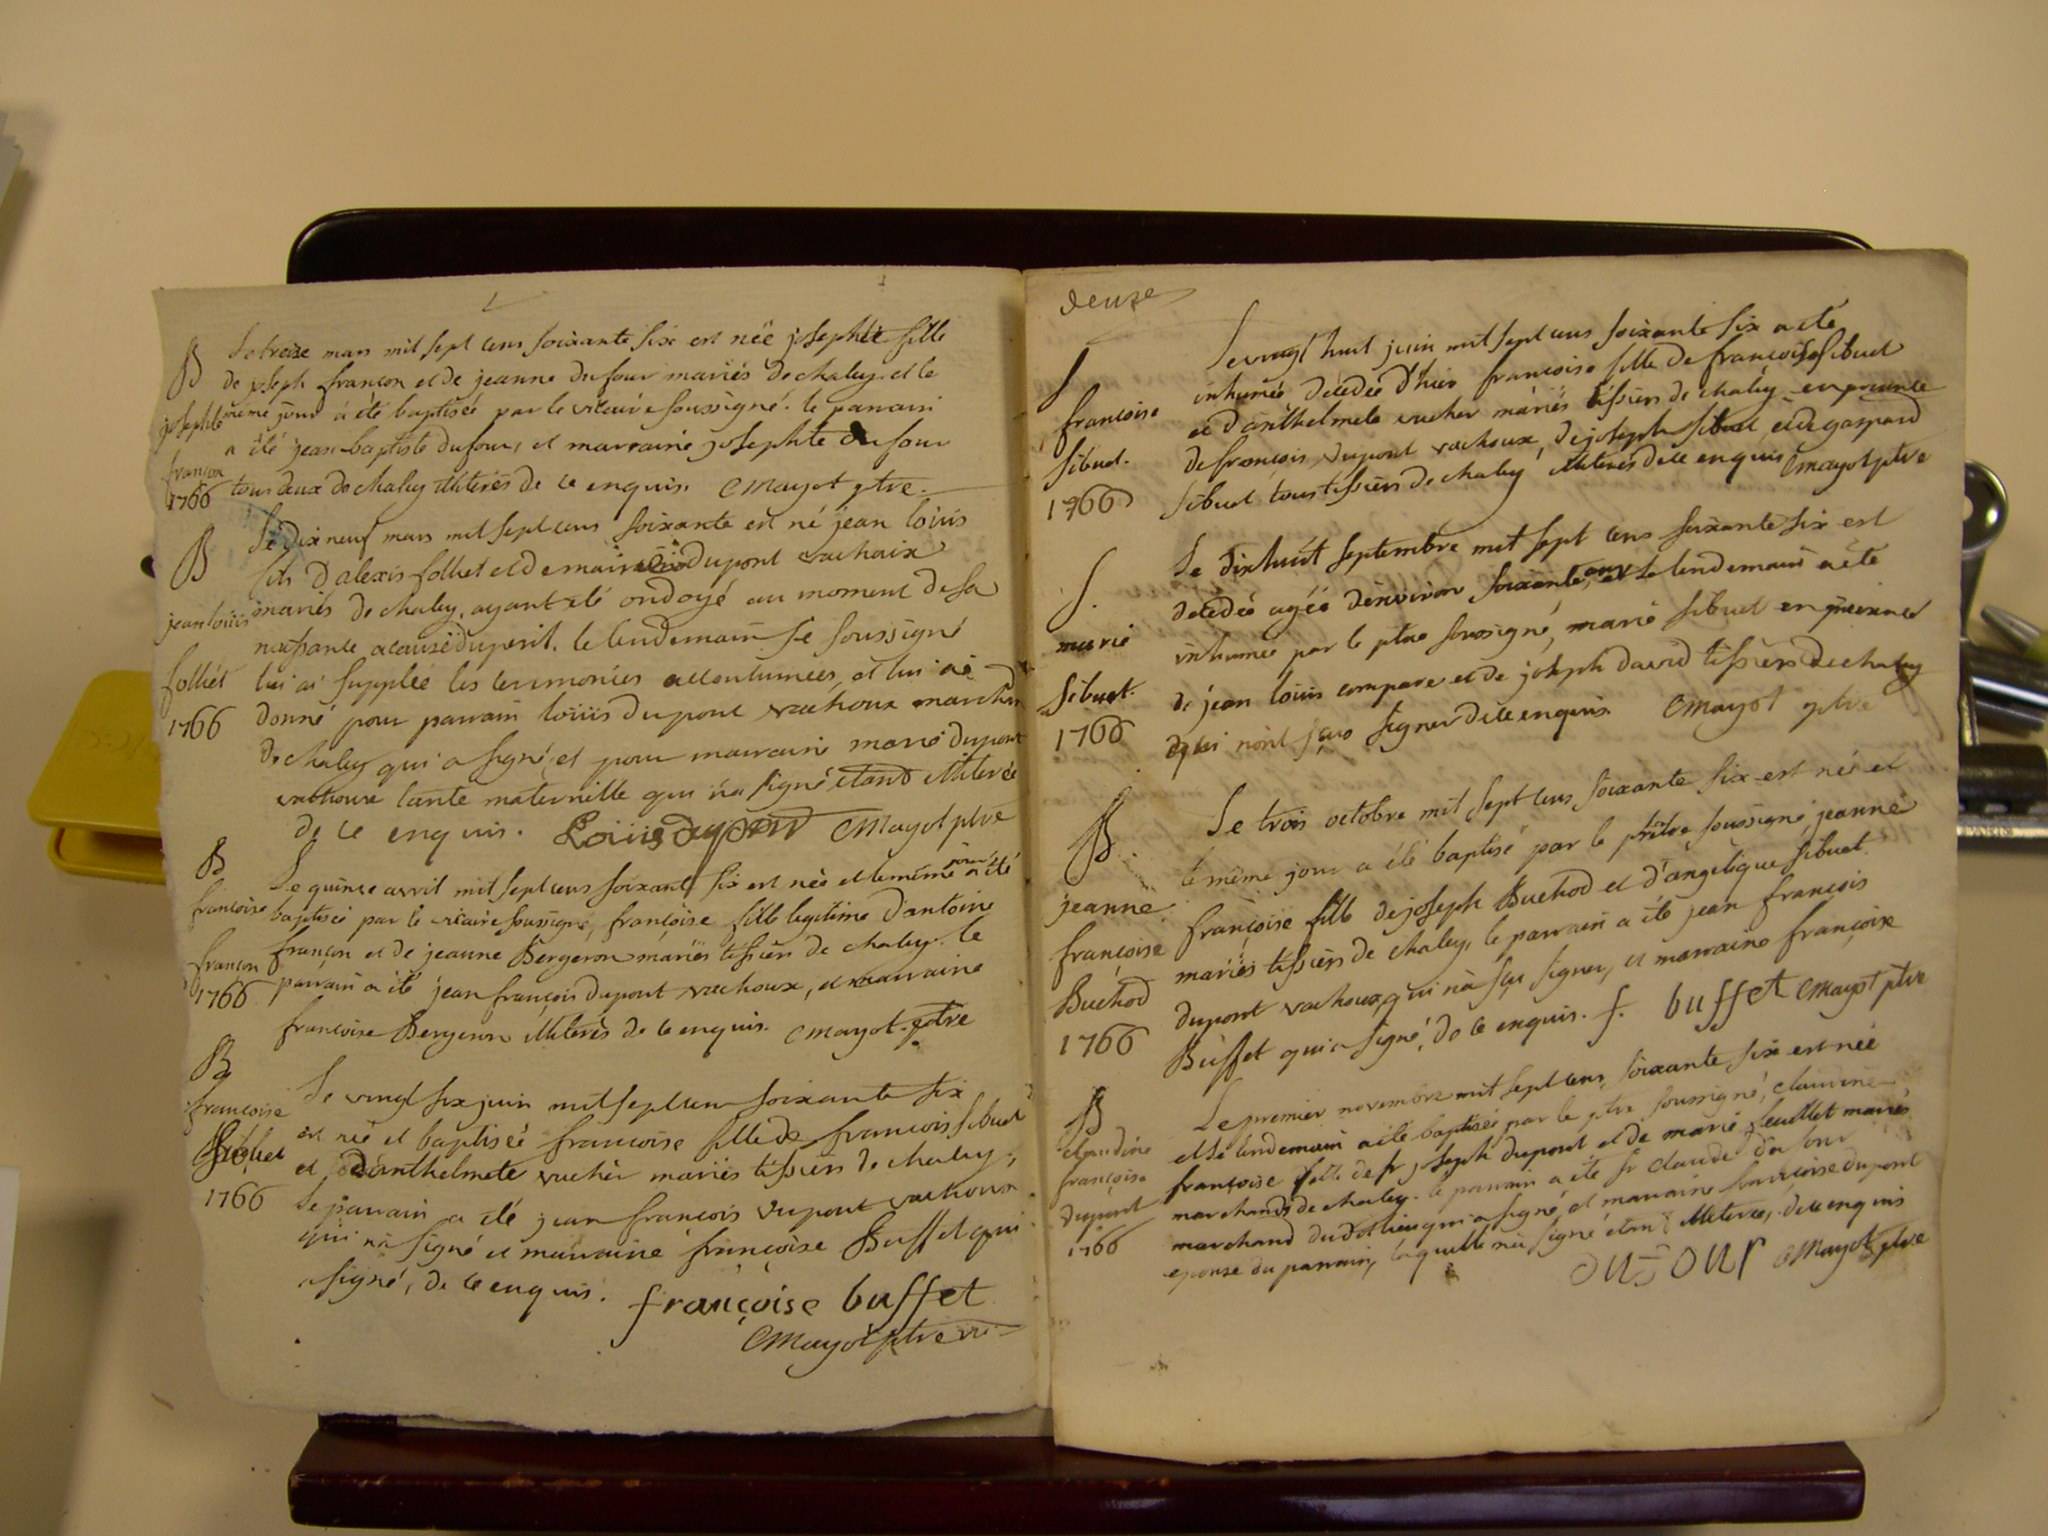 B
josephte
françon
1766
Le treize mars mil sept cens soixante six est née josephte fille
de joseph françon et de jeanne dufour mariés de chaley. et le
meme jour à été baptisée par le vicaire soussigné. le parrain
a été jean baptiste dufour, et marraine josephte dufour
tous deux de chaley illiterés de ce enquis. Mayot ptre.
B
jean loüis
folliét
1766
Le dix neuf mars mil sept cens soixante est né jean loüis
fils d'alexis folliet et de marie dupont vachoux
mariés de chaley, ayant été ondoyé au moment de sa
naissance a cause du peril. le lendemain je soussigné
lui ai supplée les ceremonies accoutumées, et lui ai
donné pour parrain loüis dupont vachoux marchand
de chaley qui a signé, et pour marraine marie dupont
vachoux tante maternelle qui n'a signé étand illiterée
de ce enquis. Loüis dupont Mayot ptre
B
françoise
françon
1766
Le quinze avril mil sept cens soixante six est née et le méme jour a été
baptisée par le vicaire soussigné, françoise fille legitime d'antoine
françon et de jeanne Bergeron mariés tissiers de chaley. le
parrain a été jean françois dupont vachoux, et marraine
françoise Bergeron illiterés de ce enquis. Mayot. ptre
B
françoise
Sibuet
1766
Le vingt six juin mil sept cens soixante six
est née et baptisée francoise fille de francois sibuet
et d'anthelmete vachér mariés tissiers de chaley,
le parrain a été jean francois dupont vachoux
qui n'a signé et marraine françoise Buffet qui
a signé, de ce enquis. françoise buffet
Mayot ptre vic
deuxe
S
françoise
sibuet.
1766
Le vingt huit juin mil sept cens soixante six a été
inhumée, décedée d'hier françoise fille de françois sibuet
et d'anthelmete vacher mariés tissiers de chaley en presence
de françois dupont vachoux, de joseph sibuet, et de gaspard
sibuet tous tissiers de chaley illiterés de ce enquis Mayot ptre
S.
marie
sibuet.
1766
Le dixhuit septembre mil sept cens soixante six est
decedée agée denviron soixante ans, et le lendemain a été
inhumée par le ptre soussigné, marie sibuet en presence
de jean loüis compare et de joseph david tissiers de chaley
qui n'ont sçus signer de ce enquis Mayot ptre
B
jeanne
françoise
Buchod
1766
Le trois octobre mil sept cens soixante six est née et
le même jour a été baptisé par le prètre soussigné jeanne
françoise fille de joseph Buchod et d'angelique sibuet
mariés tissiers de chaley, le parrain a été jean françois
dupont vachoux, qui n'a sçu signer, et marraine françoise
Buffet qui a signé, de ce enquis. f. buffet Mayot ptre
B
claudine
françoise
dupont
1766
Le premier novembre mil sept cens soixante six est née
et le lendemain a été baptisée par le ptre soussigné, claudine
françoise fille de sr joseph dupont et de marie feuillet mariés
marchands de chaley. le parrain a été sr claude dufour
marchand dudit lieu qui a signé, et marraine françoise dupont
epouse du parrain, laquelle n'a signé étant illiterée, de ce enquis
dufour Mayot ptre